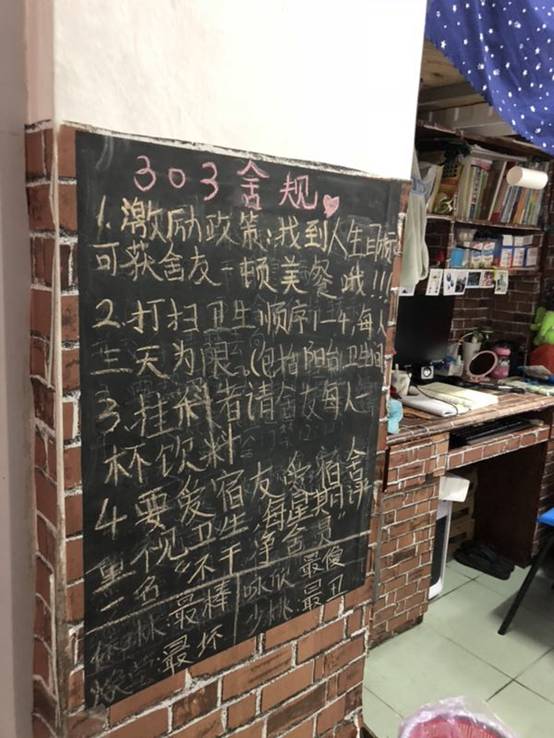 303舍规
1.激励政策:找到人生目标
可获舍友一顿美餐哦!!!
2.打扫卫生顺序1-4,每人
三天为限。(包括阳台,卫生间
3.挂科者请舍友每人一
杯饮料
4 要爱宿友爱宿舍
重视卫生 每星期评
一名“不干净舍员”
最棒 咏欣 最傻
最坏 少 最丑